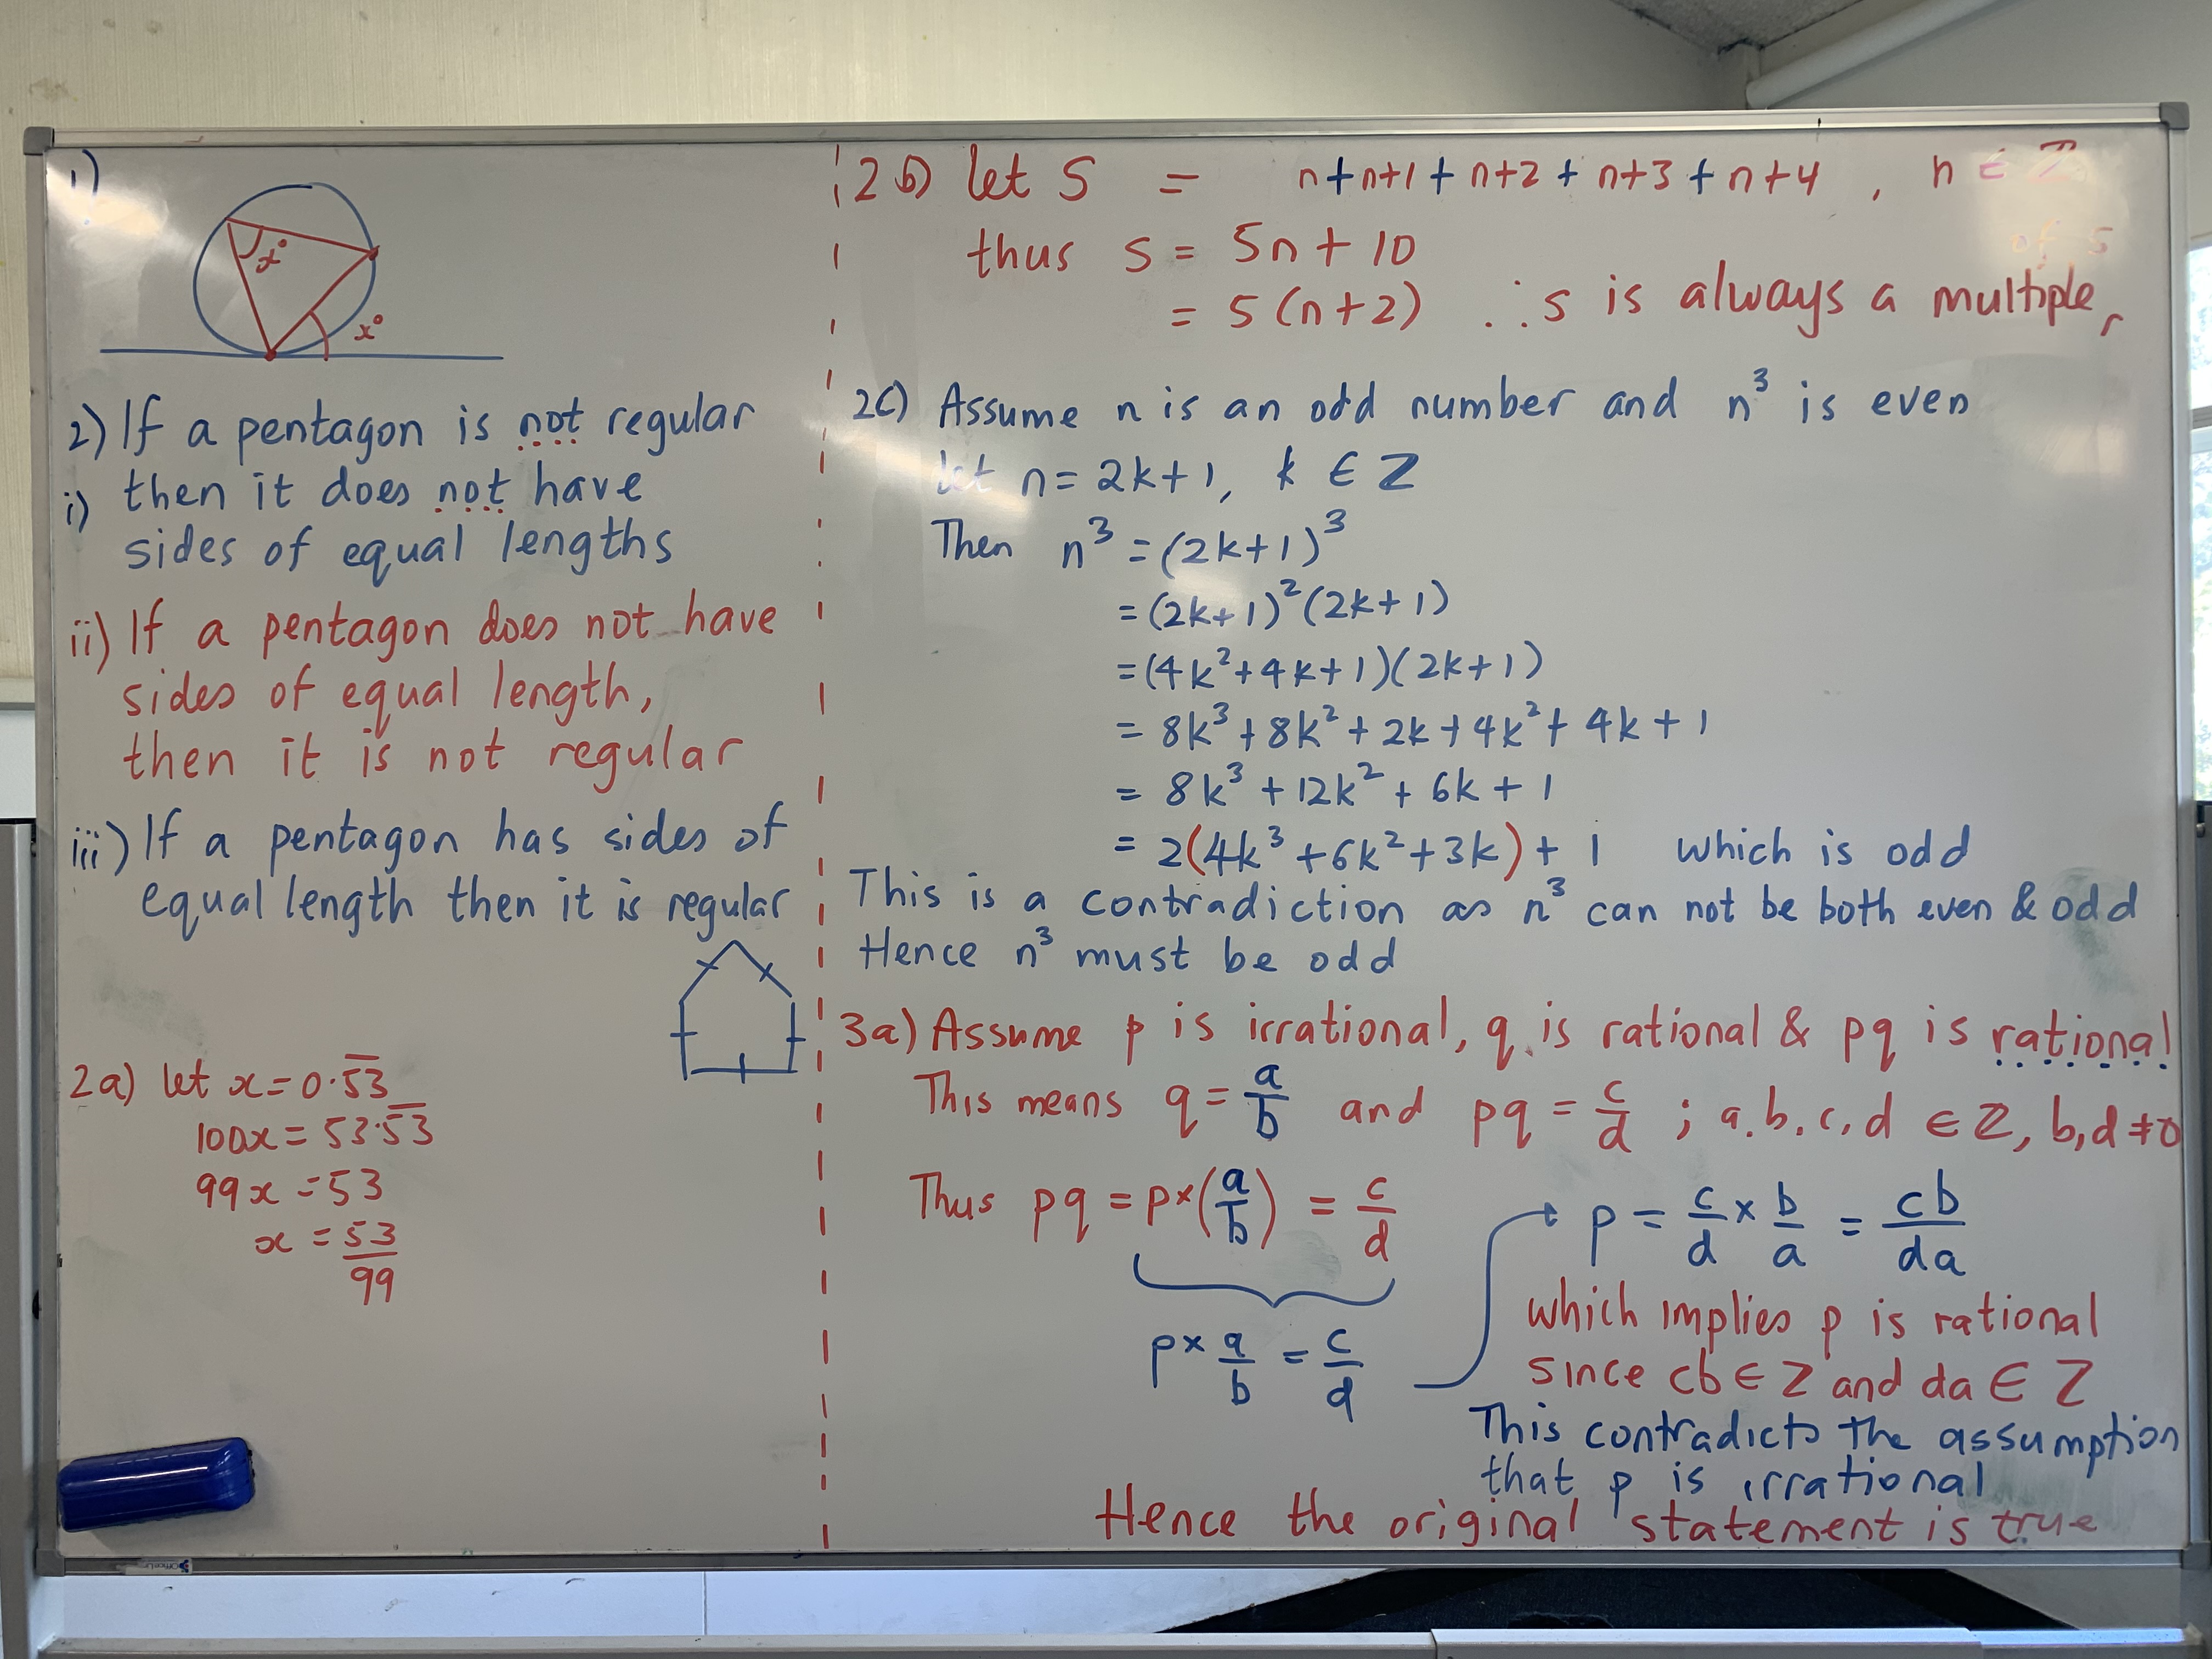 1)
x°
x°
2) If a pentagon is not regular
i) then it does not have
sides of equal lengths
ii) If a pentagon does not have
sides of equal length,
then it is not regular
iii) If a pentagon has sides of
equal length then it is regular
2a) let x = 0.5̅3̅
100x = 53.5̅3̅
99x = 53
x = 53/99
2b) let S = n+n+1+n+2+n+3+n+4, n ∈ Z
thus s = 5n + 10
of 5
= 5(n+2) ∴ s is always a multiple
2c) Assume n is an odd number and n³ is even
let n = 2k+1, k ∈ Z
Then n³ = (2k+1)³
= (2k+1)²(2k+1)
= (4k²+4k+1)(2k+1)
= 8k³+8k²+2k+4k²+4k+1
= 8k³+12k²+6k+1
= 2(4k³+6k²+3k)+1 which is odd
This is a contradiction as n³ can not be both even & odd
Hence n³ must be odd
3a) Assume p is irrational, q is rational & pq is rational
This means q = a/b and pq = c/d ; a.b.c,d ∈ Z, b,d ≠ 0
Thus pq = p×(a/b) = c/d
p × a/b = c/d
p = c/d × b/a = cb/da
which implies p is rational
since cb ∈ Z and da ∈ Z
This contradicts the assumption
that p is irrational
Hence the original statement is true